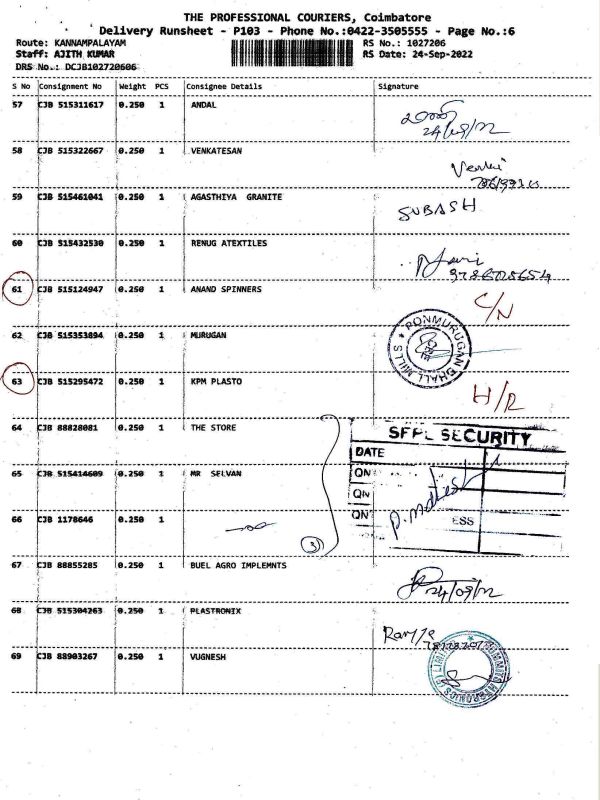 THE PROFESSIONAL COURIERS, Coimbatore
Delivery Runsheet - P103 - Phone No.:0422-3505555 - Page No.:6
Route: KANNAMPALAYAM RS No.: 1027206
Staff: AJITH KUMAR RS Date: 24-Sep-2022
DRS No.: DCJB102720606
S No Consignment No Weight PCS Consignee Details Signature
57 CJB 515311617 0.250 1 ANDAL
24/09/22
58 CJB 515322667 0.250 1 VENKATESAN
Venki
59 CJB 515461041 0.250 1 AGASTHIYA GRANITE
SUBASH
60 CJB 515432530 0.250 1 RENUG ATEXTILES
61 CJB 515124947 0.250 1 ANAND SPINNERS
C/N
62 CJB 515353894 0.250 1 MURUGAN
PONMURUGAN DHALL MILLS
63 CJB 515295472 0.250 1 KPM PLASTO
H/R
64 CJB 88828081 0.250 1 THE STORE
SFPL SECURITY
DATE
65 CJB 515414609 0.250 1 MR SELVAN
QN
QN
66 CJB 1178646 0.250 1
QN
ESS
3
67 CJB 88855285 0.250 1 BUEL AGRO IMPLEMNTS
24/09/22
68 CJB 515304263 0.250 1 PLASTRONIX
69 CJB 88903267 0.250 1 VUGNESH